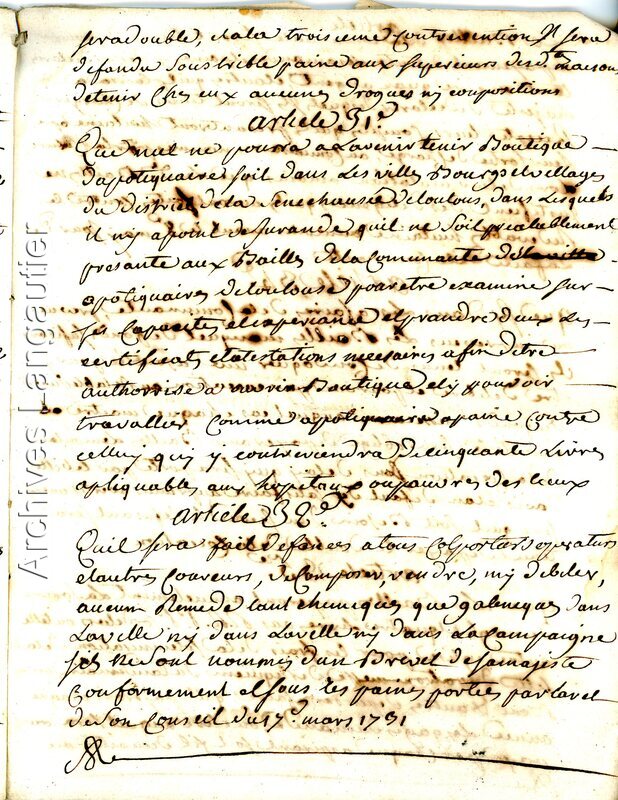 sera double, et a la troisieme Contrevention Il sera
defandu sous trible paine aux superieurs desd. maisons
detenir Ches eux aucunes drogues ny conpositions
article 31e.
Que nul ne pourra a Lavenir tenir Boutique
Dapotiquaire soit dans Les villes Bourgs et villages
du District de la Senechausée de toulouse, dans Lesquels
il ny a point de Jurande, quil ne soit prealablement
presante aux Bailles de la Communaute de la ville
apotiquaires de toulouse pour etre examine sur
ses Capacites et experiance et prandre deux Les
certificats et atestations necessaires afin detre
authorrise a ouvrir Boutique, et y pouvoir
travallier comme apotiquaire a paine contre
celluy quy y contreviendra de cinquante Livres
apliquables aux hopitaux ou pauvres des Lieux
Article 32e.
Quil sera fait defances a tous Colporturs operaturs
et autres Coureurs, de Composer, vendre, ny debiter,
aucun Remede tant chemiques que galeniques dans
La ville ny dans La ville ny dans La Campaigne
sils Ne sont nommes dun Brevet de sa majeste
Conformement et sous les paines portées par laret
de son Conseil du 17e. mars 1731
Archives Langautier